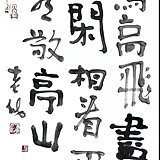 鳥高飛盡
閑相看兩
有敬亭山